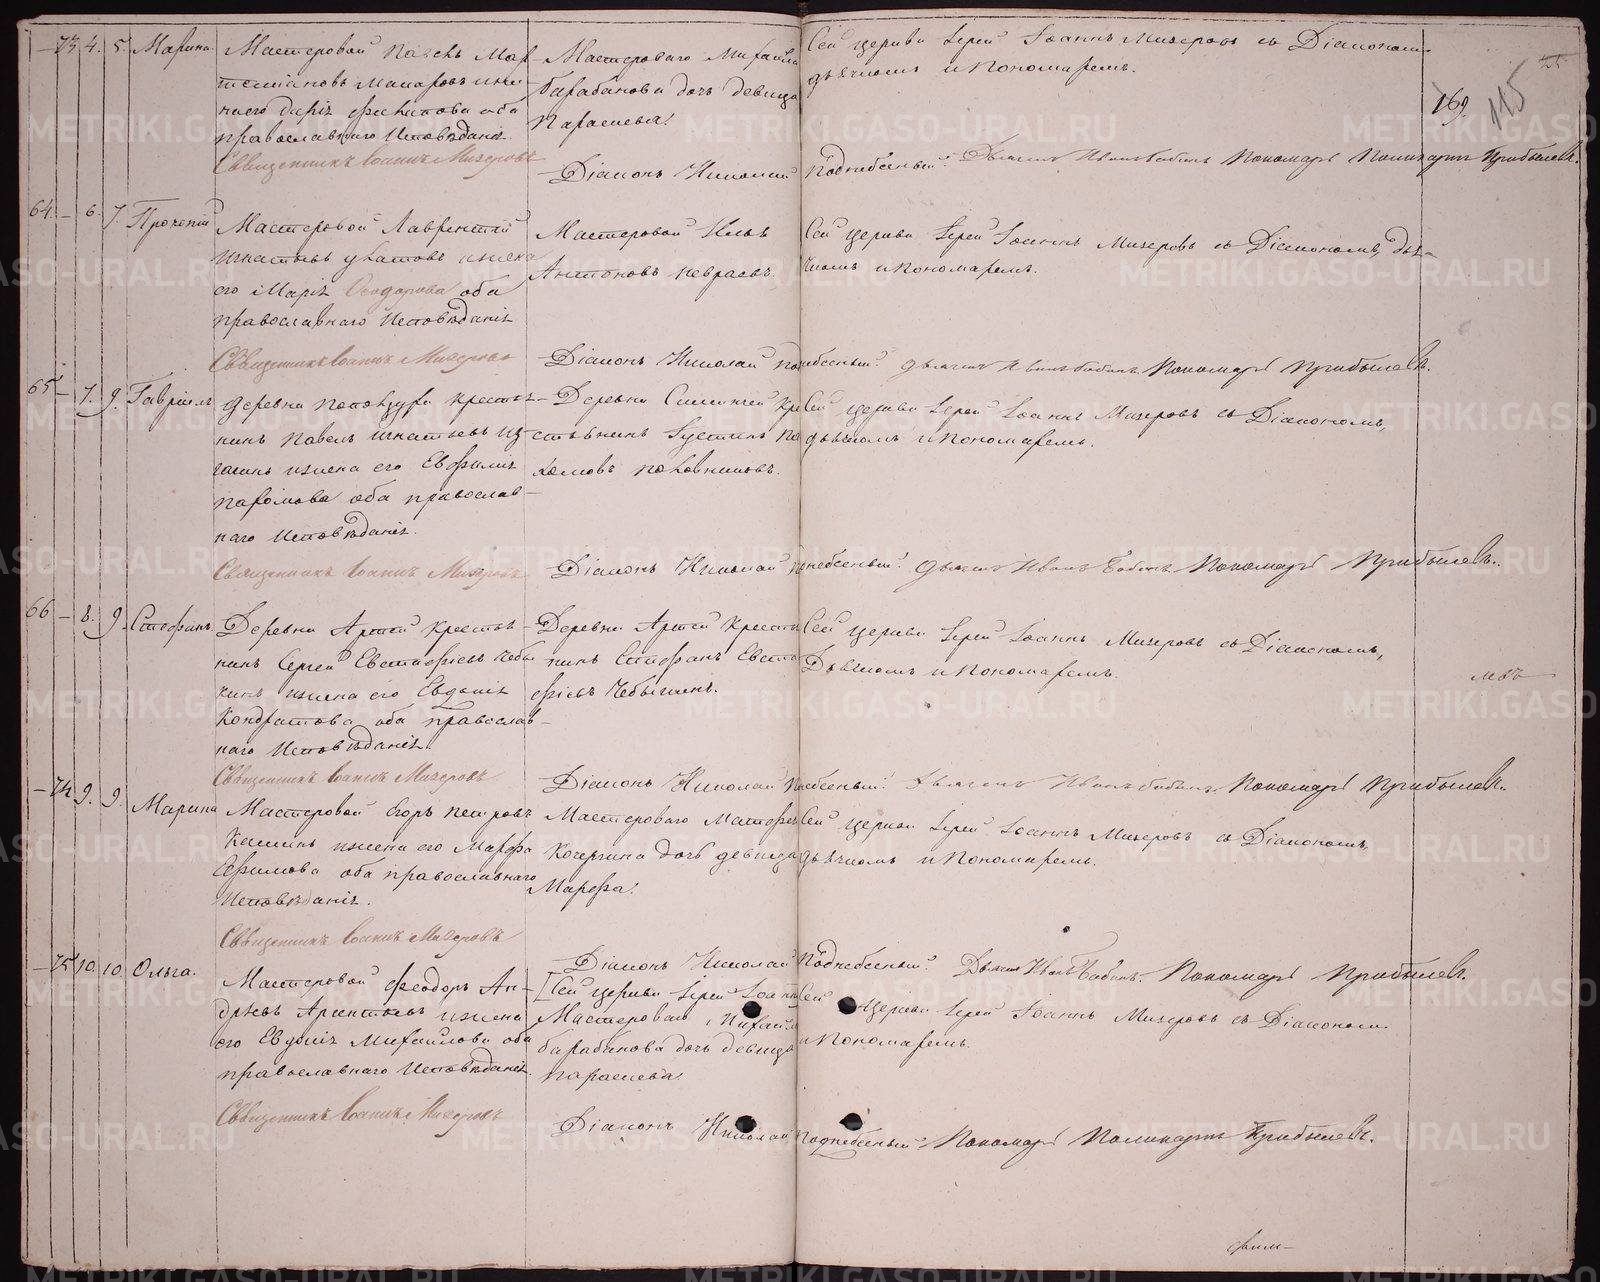 169.
115
–73. 4. 5. Марина.
Мастеровой Павелъ Мар-
темiановъ Макаровъ и же-
на его Дарiя Филипова оба
православнаго Исповѣданiя.
Мастероваго Михаила
Барабанова дочь девица
Параскева.
Сей церкви Iерей Iоаннъ Мизеровъ съ Дiакономъ
дьячкомъ и Пономаремъ.
Священникъ Iоаннъ Мизеровъ
Дiаконъ Николай Поднебесный. Дьячекъ Иванъ Бабинъ Пономарь Поликарпъ Прибылевъ.
64. – 6. 7. Прокопiй
Мастеровой Лаврентiй
Игнатьевъ Ухатовъ и жена
его Марiя Ѳеодорова оба
православнаго Исповѣданiя
Мастеровой Илья
Антоновъ Невраевъ.
Сей церкви Iерей Iоаннъ Мизеровъ съ Дiакономъ, дья-
чкомъ и Пономаремъ.
Священникъ Iоаннъ Мизеровъ
Дiаконъ Николай Поднебесный. Дьячекъ Иванъ Бабинъ Пономарь Прибылевъ.
65 – 7. 9. Гаврiилъ
Деревни Потопдура крестья-
нинъ Павелъ Игнатьевъ
и жена его Евфимiя
Паромова оба православ-
наго Исповѣданiя.
Деревни Симинчей кре
стьянинъ Густинъ Па
хомовъ Половниковъ.
Сей церкви Iерей Iоаннъ Мизеровъ съ Дiакономъ,
дьячкомъ и Пономаремъ.
Священникъ Iоаннъ Мизеровъ
Дiаконъ Николай Поднебесный. Дьячекъ Иванъ Бабинъ Пономарь Прибылевъ.
66 – 8. 9. Стефанъ.
Деревни Артей крестья-
нинъ Сергей Евстафiевъ Чебы
кинъ и жена его Евдокiя
Кондратова оба Православ-
наго Исповѣданiя.
Деревни Артей крестья
нинъ Стефанъ Евста
фiевъ Чебыкинъ.
Сей церкви Iерей Iоаннъ Мизеровъ съ Дiакономъ,
Дьячкомъ и Пономаремъ.
Священникъ Iоаннъ Мизеровъ
Дiаконъ Николай Поднебесный. Дьячекъ Иванъ Бабинъ Пономарь Прибылевъ.
–74. 9. 9. Марина
Мастеровой Егоръ Петровъ
Кашинъ и жена его Марфа
Ефимова оба православнаго
Исповѣданiя.
Мастероваго Матфея
Кочергина дочь девица
Марфа.
Сей церкви Iерей Iоаннъ Мизеровъ съ Дiакономъ,
дьячкомъ и Пономаремъ.
Священникъ Iоаннъ Мизеровъ
Дiаконъ Николай Поднебесный. Дьячекъ Иванъ Бабинъ. Пономарь Прибылевъ.
–75. 10. 10. Ольга.
Мастеровой Феодоръ Ан-
дреевъ Арентьевъ и жена
его Евдокiя Михайлова оба
православнаго Исповѣданiя.
[Сей церкви Iерей Iоаннъ
Мастероваго Михайла
Барабанова дочь девица
Параскева
Сей церкви Iерей Iоаннъ Мизеровъ съ Дiакономъ
и Пономаремъ.
Священникъ Iоаннъ Мизеровъ
Дiаконъ Николай Поднебесный. Пономарь Поликарпъ Прибылевъ.
METRIKI.GASO-URAL.RU